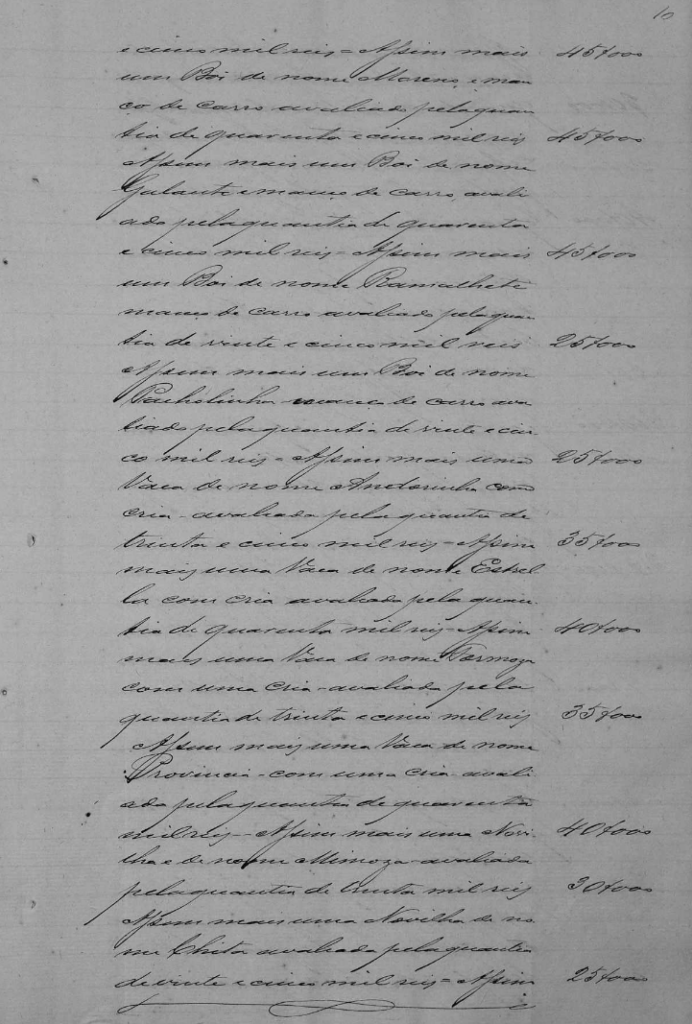 10
e cinco mil reis = Assim mais 45$000
um Boi de nome Moreno, e man
ço de carro avaliado pela quan
tia de quarenta e cinco mil reis 45$000
Assim mais um Boi de nome
Galante e manço de carro, avali
ado pela quantia de quarenta
e cinco mil reis = Assim mais 45$000
um Boi de nome Ramalhete
manço de carro avaliado pela quan
tia de vinte e cinco mil reis 25$000
Assim mais um Boi de nome
Pacholinha manço de carro ava
liado pela quantia de vinte e cin
co mil reis = Assim mais uma 25$000
Vaca de nome Andorinha com
cria avaliada pela quantia de
trinta e cinco mil reis = Assim 35$000
mais uma Vaca de nome Estrel
la com cria avaliada pela quan
tia de quarenta mil reis = Assim 40$000
mais uma Vaca de nome Formoza
com uma cria avaliada pela
quantia de trinta e cinco mil reis 35$000
Assim mais uma Vaca de nome
Provincia com uma cria avali
ada pela quantia de quarenta
mil reis = Assim mais uma Novi 40$000
lha e de nome Mimoza avaliada
pela quantia de trinta mil reis 30$000
Assim mais uma Novilha de no
me Chita avaliada pela quantia
de vinte e cinco mil reis = Assim 25$000